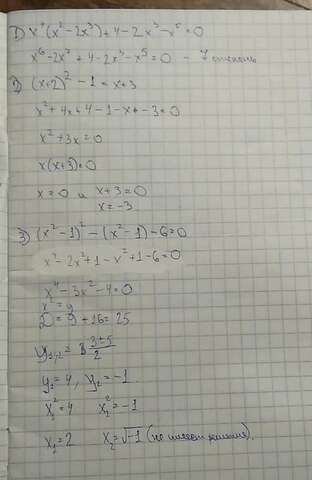 1) x⁴(x²-2x³)+4-2x³-x⁵=0
x⁶-2x⁷+4-2x³-x⁵=0 - 7 степень
2) (x+2)²-1=x+3
x²+4x+4-1-x-3=0
x²+3x=0
x(x+3)=0
x=0 и x+3=0
x=-3
3) (x²-1)²-(x²-1)-6=0
x⁴-2x²+1-x²+1-6=0
x⁴-3x²-4=0
x²=y
D=9+16=25
y₁,₂=(3±5)/2
y₁=4, y₂=-1
x₁²=4 x₂²=-1
x₁=2 x₂=√-1 (не имеет решения)